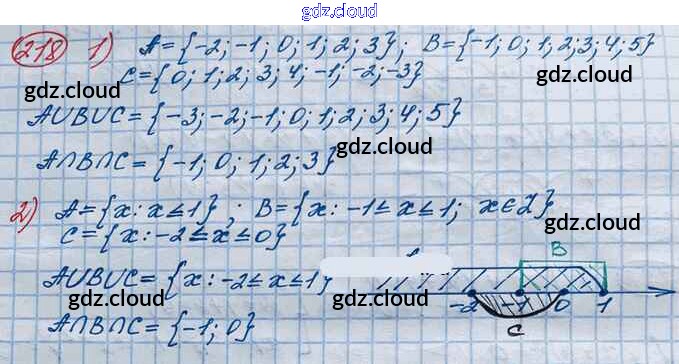 gdz.cloud
gdz.cloud
218 1) A={-2; -1; 0; 1; 2; 3}; B={-1; 0; 1; 2; 3; 4; 5}
C={0; 1; 2; 3; 4; -1; -2; -3}
gdz.cloud gdz.cloud
A∪B∪C={-3; -2; -1; 0; 1; 2; 3; 4; 5}
gdz.cloud
A∩B∩C={-1; 0; 1; 2; 3}
gdz.cloud
2) A={x: x≤1}; B={x: -1≤x≤1; x∈Z}
gdz.cloud gdz.cloud
C={x: -2≤x≤0}
B
A∪B∪C={x: -2≤x≤1}
gdz.cloud gdz.cloud gdz.cloud
-2 -1 0 1
A∩B∩C={-1; 0}
C
gdz.cloud gdz.cloud